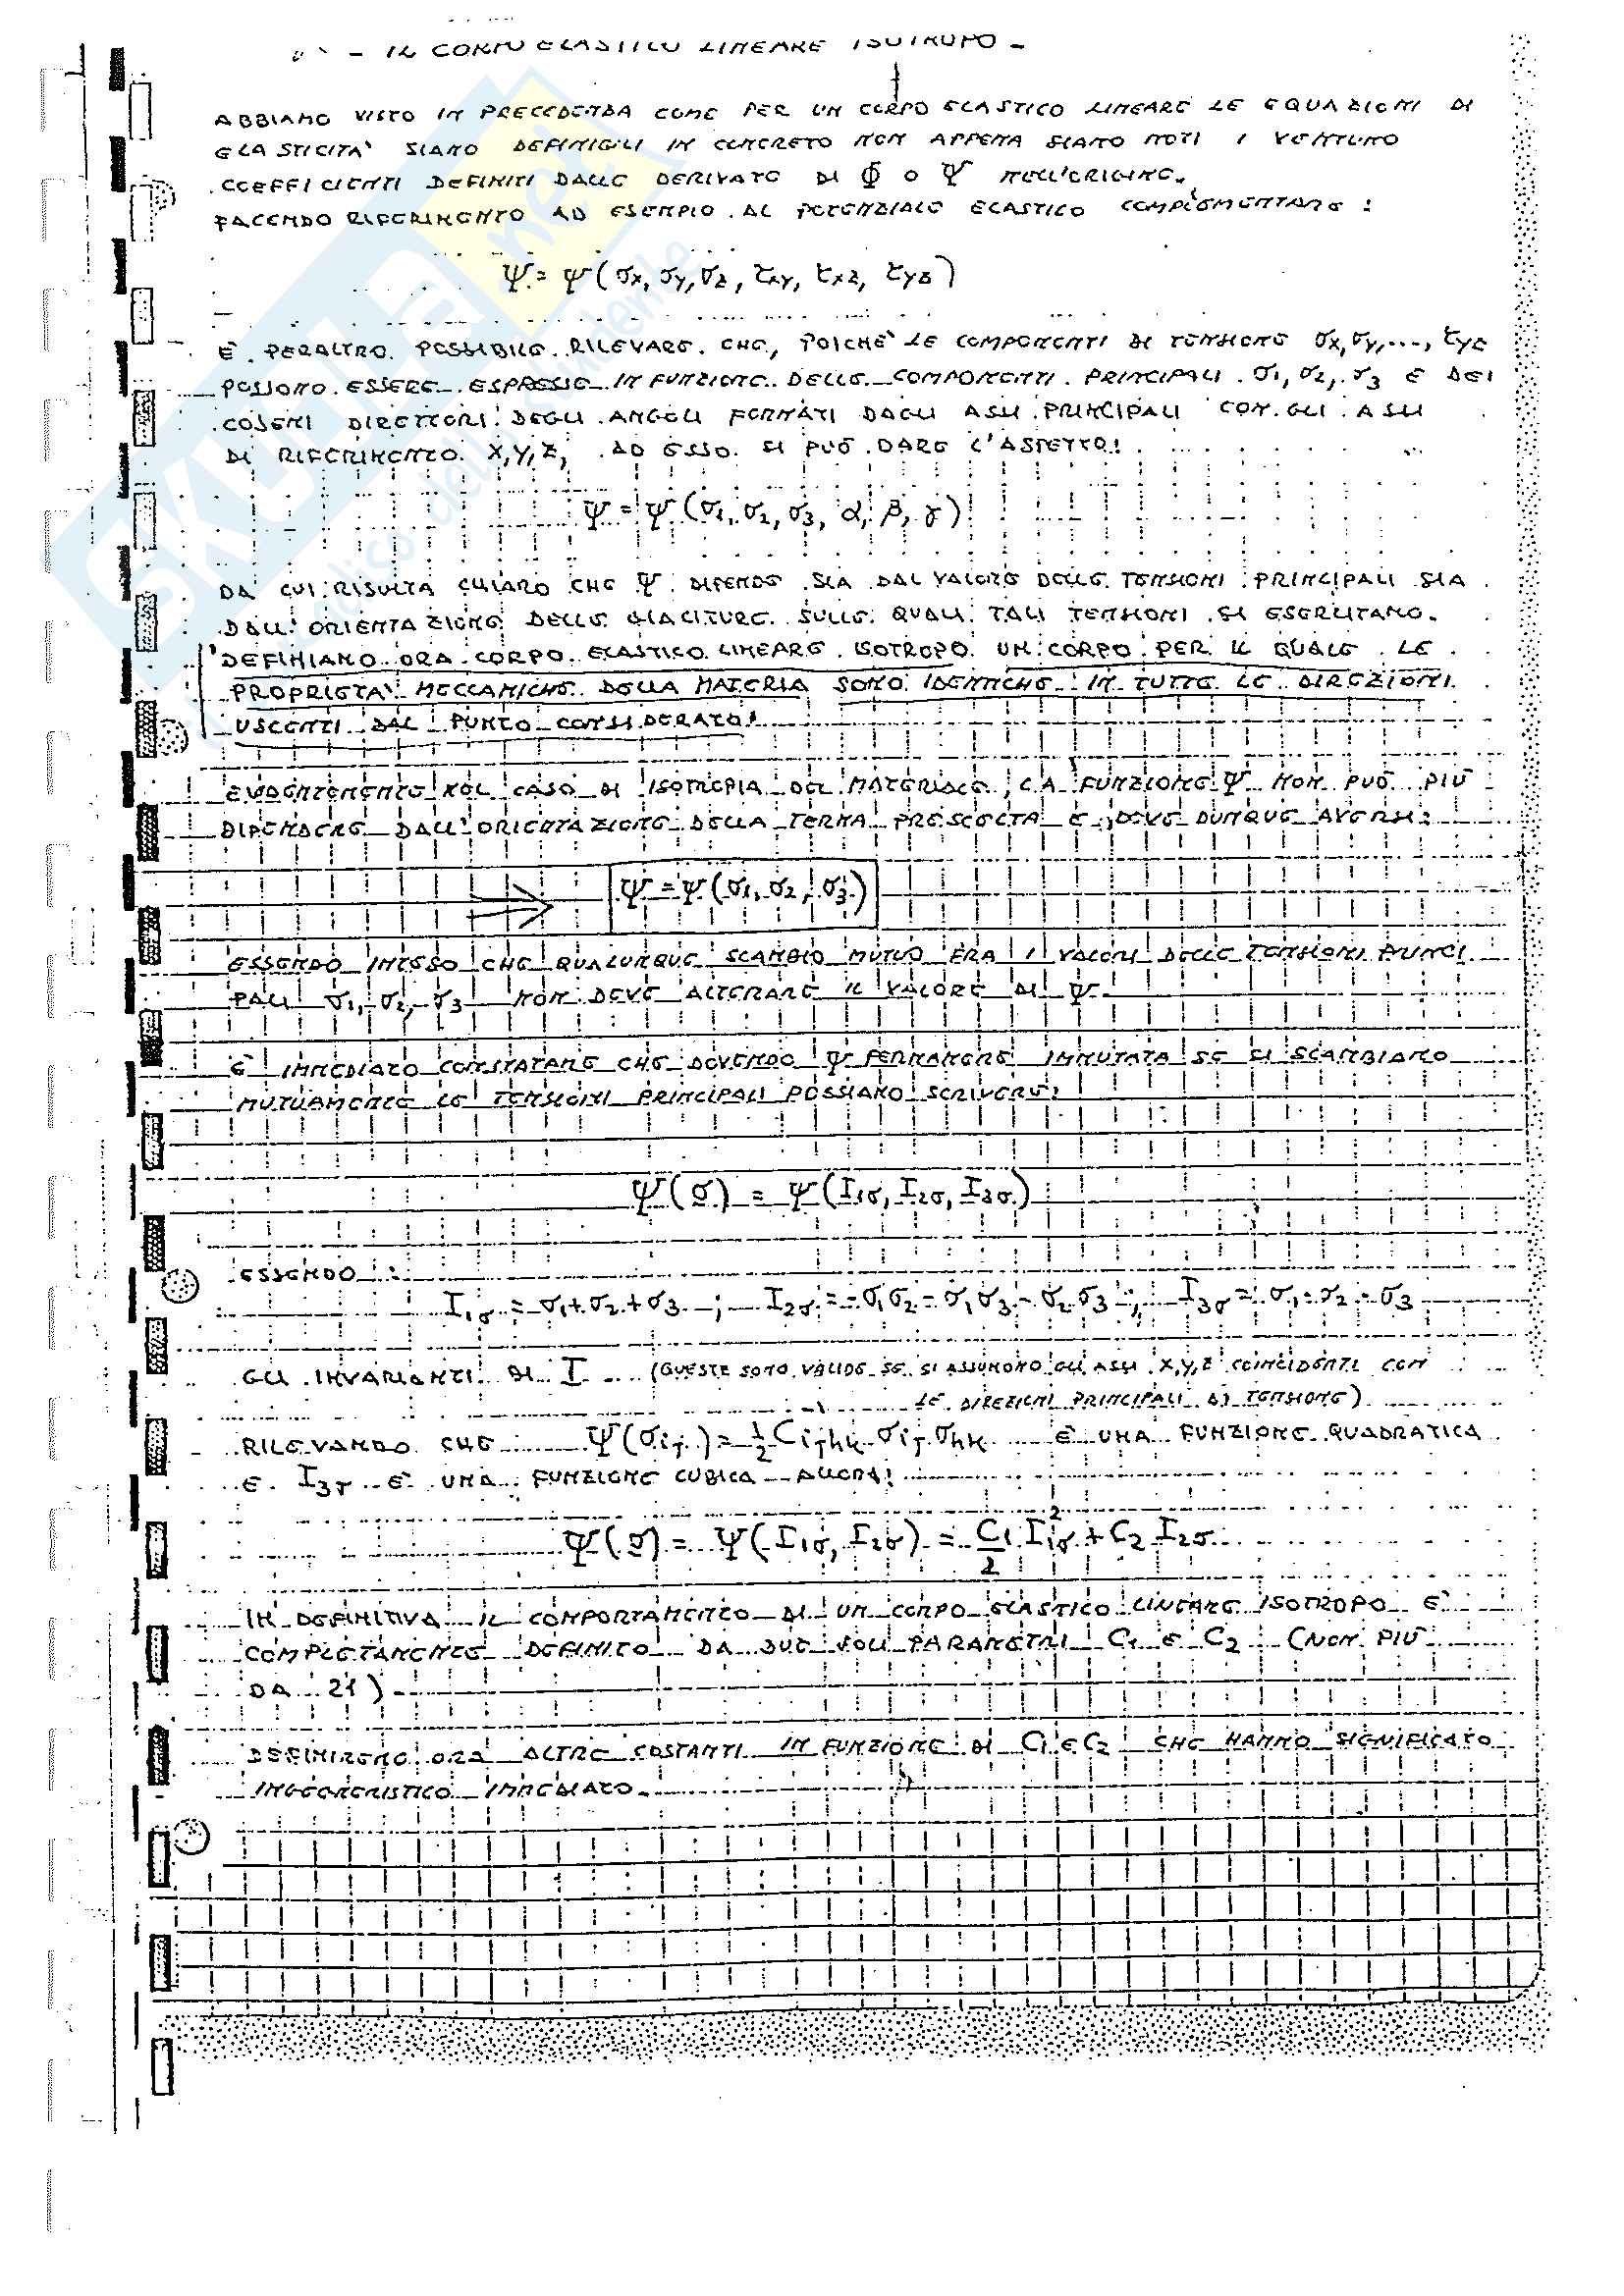 - IL CORPO ELASTICO LINEARE ISOTROPO -
ABBIAMO VISTO IN PRECEDENZA COME PER UN CORPO ELASTICO LINEARE LE EQUAZIONI DI
ELASTICITA' SIANO DEFINIBILI IN CONCRETO NON APPENA SIANO NOTI I VENTUNO
COEFFICIENTI DEFINITI DALLE DERIVATE DI Φ O Ψ NELL'ORIGINE.
FACENDO RIFERIMENTO AD ESEMPIO AL POTENZIALE ELASTICO COMPLEMENTARE:
Ψ = Ψ(σx, σy, σz, τxy, τxz, τyz)
È PERALTRO POSSIBILE RILEVARE CHE, POICHÈ LE COMPONENTI DI TENSIONE σx, σy, ..., τyz
POSSONO ESSERE ESPRESSE IN FUNZIONE DELLE COMPONENTI PRINCIPALI σ1, σ2, σ3 E DEI
COSENI DIRETTORI DEGLI ANGOLI FORMATI DAGLI ASSI PRINCIPALI CON GLI ASSI
DI RIFERIMENTO X, Y, Z, AD ESSO SI PUÒ DARE L'ASPETTO:
Ψ = Ψ(σ1, σ2, σ3, α, β, γ)
DA CUI RISULTA CHIARO CHE Ψ DIPENDE SIA DAL VALORE DELLE TENSIONI PRINCIPALI SIA
DALL'ORIENTAZIONE DELLE GIACITURE SULLE QUALI TALI TENSIONI SI ESERCITANO.
DEFINIAMO ORA CORPO ELASTICO LINEARE ISOTROPO UN CORPO PER IL QUALE LE
PROPRIETA' MECCANICHE DELLA MATERIA SONO IDENTICHE IN TUTTE LE DIREZIONI
USCENTI DAL PUNTO CONSIDERATO!
EVIDENTEMENTE NEL CASO DI ISOTROPIA DEL MATERIALE, LA FUNZIONE Ψ NON PUÒ PIÙ
DIPENDERE DALL'ORIENTAZIONE DELLA TERNA PRESCELTA E DEVE DUNQUE AVERSI:
Ψ = Ψ(σ1, σ2, σ3)
ESSENDO INTESO CHE QUALUNQUE SCAMBIO MUTUO FRA I VALORI DELLE TENSIONI PRINCI
PALI σ1, σ2, σ3 NON DEVE ALTERARE IL VALORE DI Ψ.
È IMMEDIATO CONSTATARE CHE DOVENDO Ψ PERMANERE IMMUTATA SE SI SCAMBIANO
MUTUAMENTE LE TENSIONI PRINCIPALI POSSIAMO SCRIVERE:
Ψ(σ) = Ψ(I1σ, I2σ, I3σ)
ESSENDO :
I1σ = σ1+σ2+σ3 ; I2σ = -σ1σ2 - σ1σ3 - σ2σ3 ; I3σ = σ1·σ2·σ3
GLI INVARIANTI DI I (QUESTE SONO VALIDE SE SI ASSUMONO GLI ASSI X, Y, Z COINCIDENTI CON
LE DIREZIONI PRINCIPALI DI TENSIONE)
RILEVANDO CHE Ψ(σij) = 1/2 Cijhk σij σhk È UNA FUNZIONE QUADRATICA
E I3σ È UNA FUNZIONE CUBICA ALLORA:
Ψ(σ) = Ψ(I1σ, I2σ) = C1/2 I1σ² + C2 I2σ
IN DEFINITIVA IL COMPORTAMENTO DI UN CORPO ELASTICO LINEARE ISOTROPO È
COMPLETAMENTE DEFINITO DA DUE SOLI PARAMETRI C1 E C2 (NON PIÙ
DA 21).
DEFINIREMO ORA ALTRE COSTANTI IN FUNZIONE DI C1 E C2 CHE HANNO SIGNIFICATO
INGEGNERISTICO IMMEDIATO.